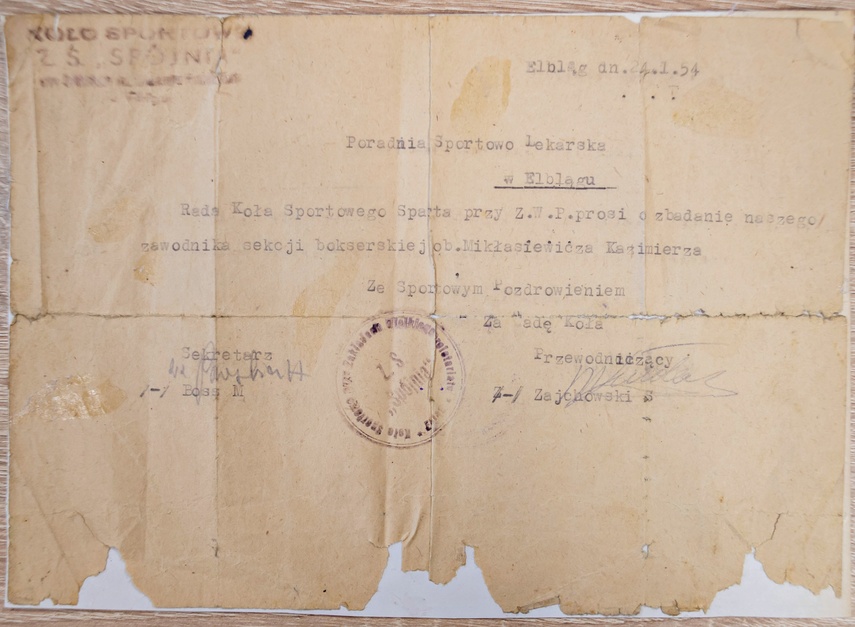 KOŁO SPORTOWE
Z.S. „SPÓJNIA"
Elbląg dn.24.1.54
Poradnia Sportowo Lekarska
w Elblągu
Rada Koła Sportowego Sparta przy Z.W.P.prosi o zbadanie naszego/
zawodnika sekcji bokserskiej ob.Mikłasiewicza Kazimierza
Ze Sportowym Pozdrowieniem
Za Radę Koła
Sekretarz
Przewodniczący
/-/ Bosa M
/-/ Zajchowski S